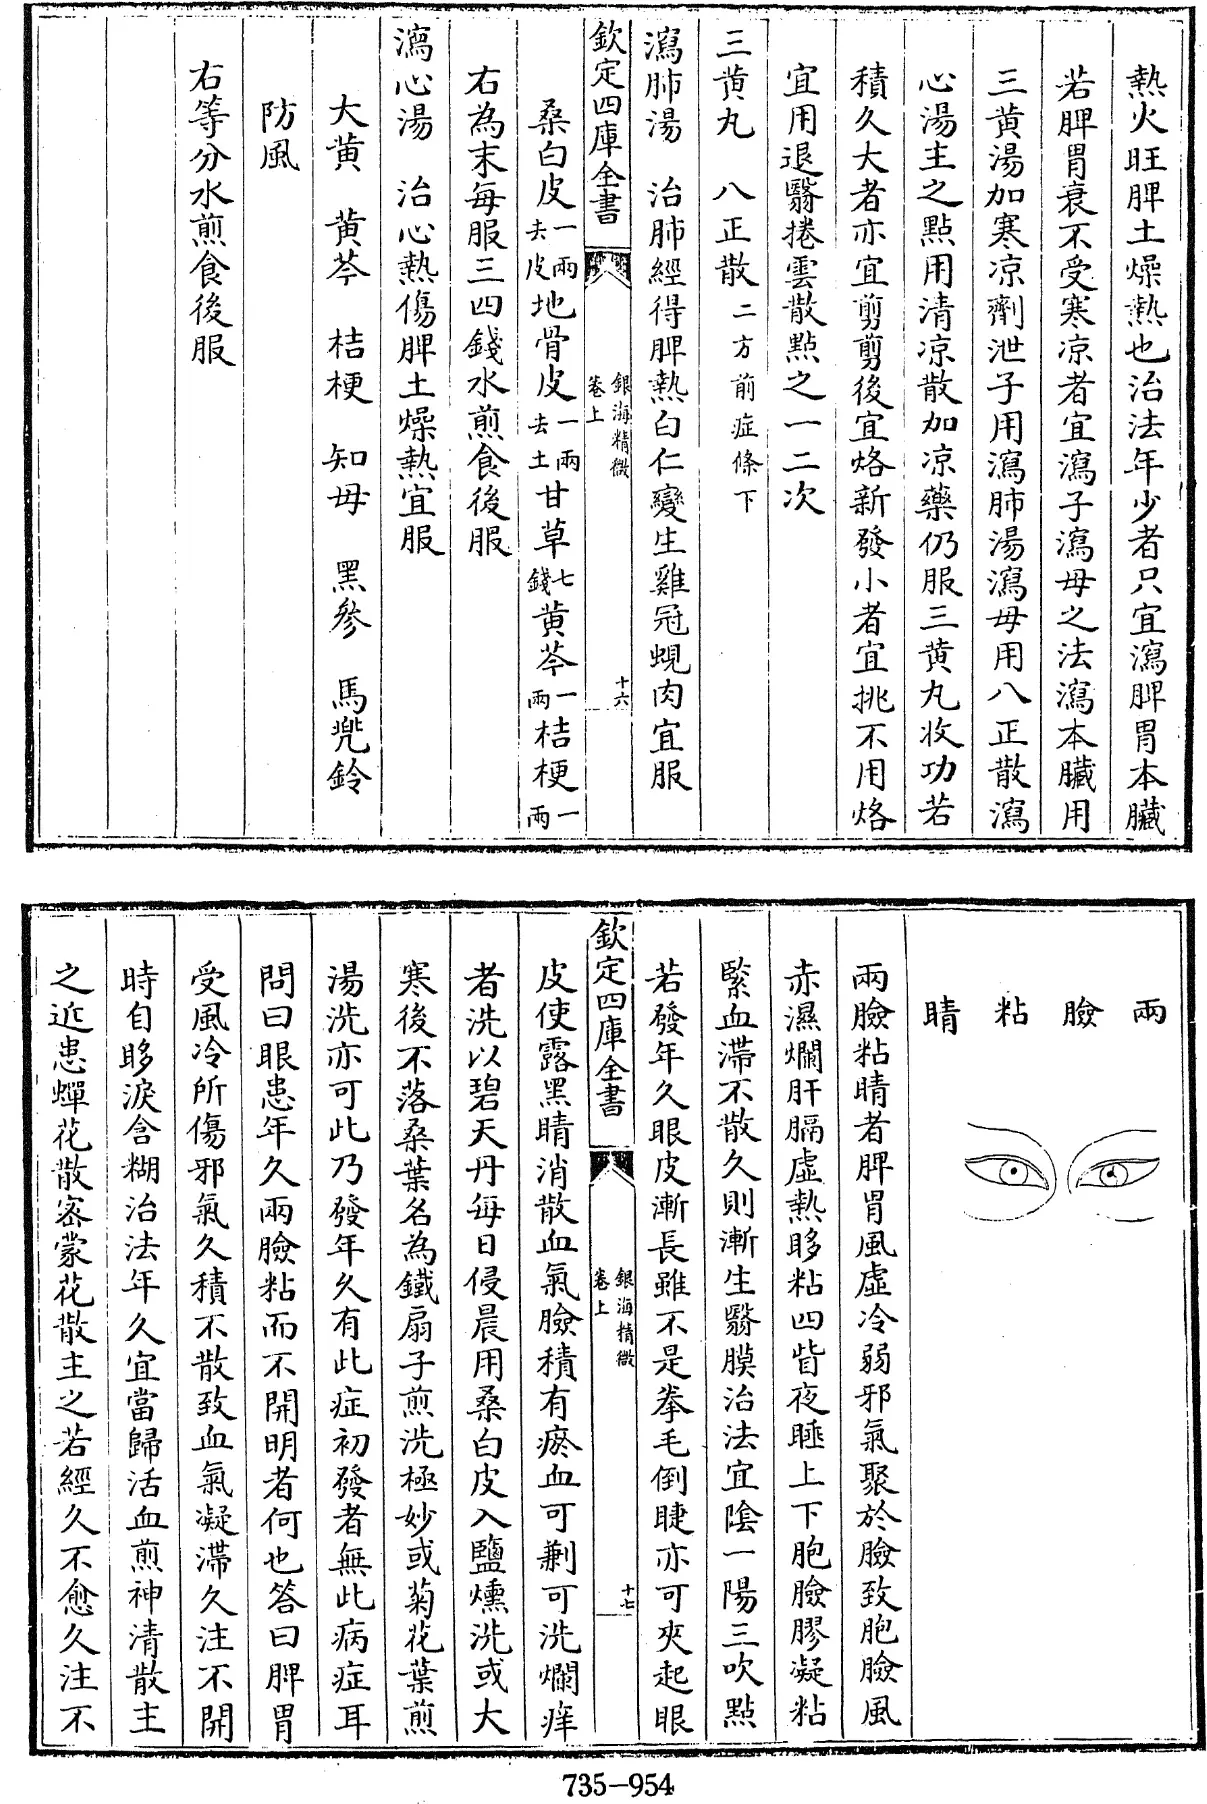 熱火旺脾土燥熱也治法年少者只宜瀉脾胃本臟
若脾胃衰不受寒凉者宜瀉子瀉母之法瀉本臟用
三黄湯加寒凉劑泄子用瀉肺湯瀉母用八正散瀉
心湯主之點用清凉散加凉藥仍服三黄丸收功若
積久大者亦宜剪剪後宜烙新發小者宜挑不用烙
宜用退翳捲雲散點之一二次
三黄丸　八正散二方前症條下
瀉肺湯　治肺經得脾熱白仁變生雞冠蜆肉宜服
欽定四庫全書
銀海精微
卷上
十六
桑白皮一兩去皮地骨皮一兩去土甘草七錢黄芩一兩桔梗一兩
右為末每服三四錢水煎食後服
瀉心湯　治心熱傷脾土燥熱宜服
大黄　黄芩　桔梗　知母　黑參　馬兠鈴
防風
右等分水煎食後服
兩臉粘睛
兩臉粘睛者脾胃風虛冷弱邪氣聚於臉致胞臉風
赤濕爛肝膈虛熱眵粘四眥夜睡上下胞臉膠凝粘
緊血滯不散久則漸生翳膜治法宜陰一陽三吹點
若發年久眼皮漸長雖不是拳毛倒睫亦可夾起眼
欽定四庫全書
銀海精微
卷上
十七
皮使露黑睛消散血氣臉積有瘀血可劆可洗爛痒
者洗以碧天丹每日侵晨用桑白皮入鹽燻洗或大
寒後不落桑葉名為鐵扇子煎洗極妙或菊花葉煎
湯洗亦可此乃發年久有此症初發者無此病症耳
問曰眼患年久兩臉粘而不開明者何也答曰脾胃
受風冷所傷邪氣久積不散致血氣凝滯久注不開
時自眵淚含糊治法年久宜當歸活血煎神清散主
之近患蟬花散宻蒙花散主之若經久不愈久注不
735-954